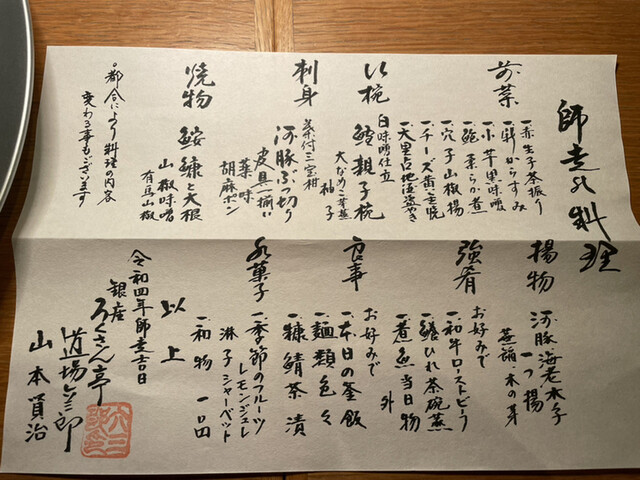 師走の料理
前菜
一、赤生子茶振り
一、餅からすみ
一、小芋黒味噌
一、鮑柔らか煮
一、穴子山椒揚
一、チーズ黄金焼
椀
鱈親子椀
白味噌仕立
大なめこ芽葱
柚子
刺身
河豚ぶつ切り
皮具揃い
薬味
胡麻ポン
葉付三宝柑
焼物
鮟鱇と大根
山椒味噌
有馬山椒
◦都合により料理の内容
変わる事もございます
揚物
河豚海老木子
一つ揚
木の芽
強肴
お好みで
一、和牛ローストビーフ
一、鱶ひれ茶碗蒸
一、煮魚当日物
外
食事
お好みで
一、本日の釜飯
一、麺類色々
一、糠鯖茶漬
水菓子
一、季節のフルーツ
レモンジュレ
淋子シャーベット
一、和物 一口
以上
令和四年師走吉日
銀座
ろくさん亭
道場六三郎
山本賢治